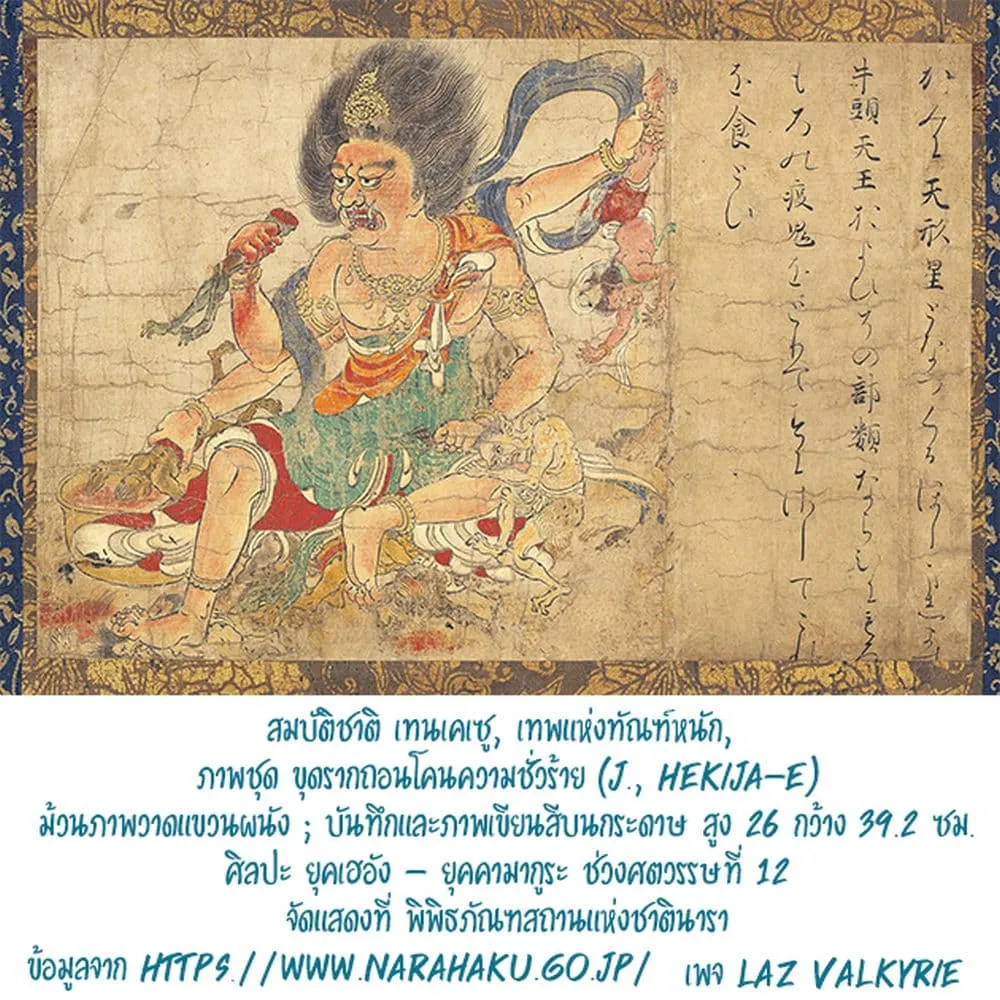 天形星となつくるほし
牛頭天王およひその部類ならひにもろ
もろの疫鬼をとりてすにさしてこれ
を食とす
สมบัติชาติ เทนเคเซู, เทพแห่งทัณฑ์หนัก,
ภาพชุด ขุดรากถอนโคนความชั่วร้าย (J., HEKIJA-E)
ม้วนภาพวาดแขวนผนัง ; บันทึกและภาพเขียนสีบนกระดาษ สูง 26 กว้าง 39.2 ซม.
ศิลปะ ยุคเฮอัง – ยุคคามากูระ ช่วงศตวรรษที่ 12
จัดแสดงที่ พิพิธภัณฑสถานแห่งชาตินารา
ข้อมูลจาก HTTPS://WWW.NARAHAKU.GO.JP/ เพจ LAZ VALKYRIE